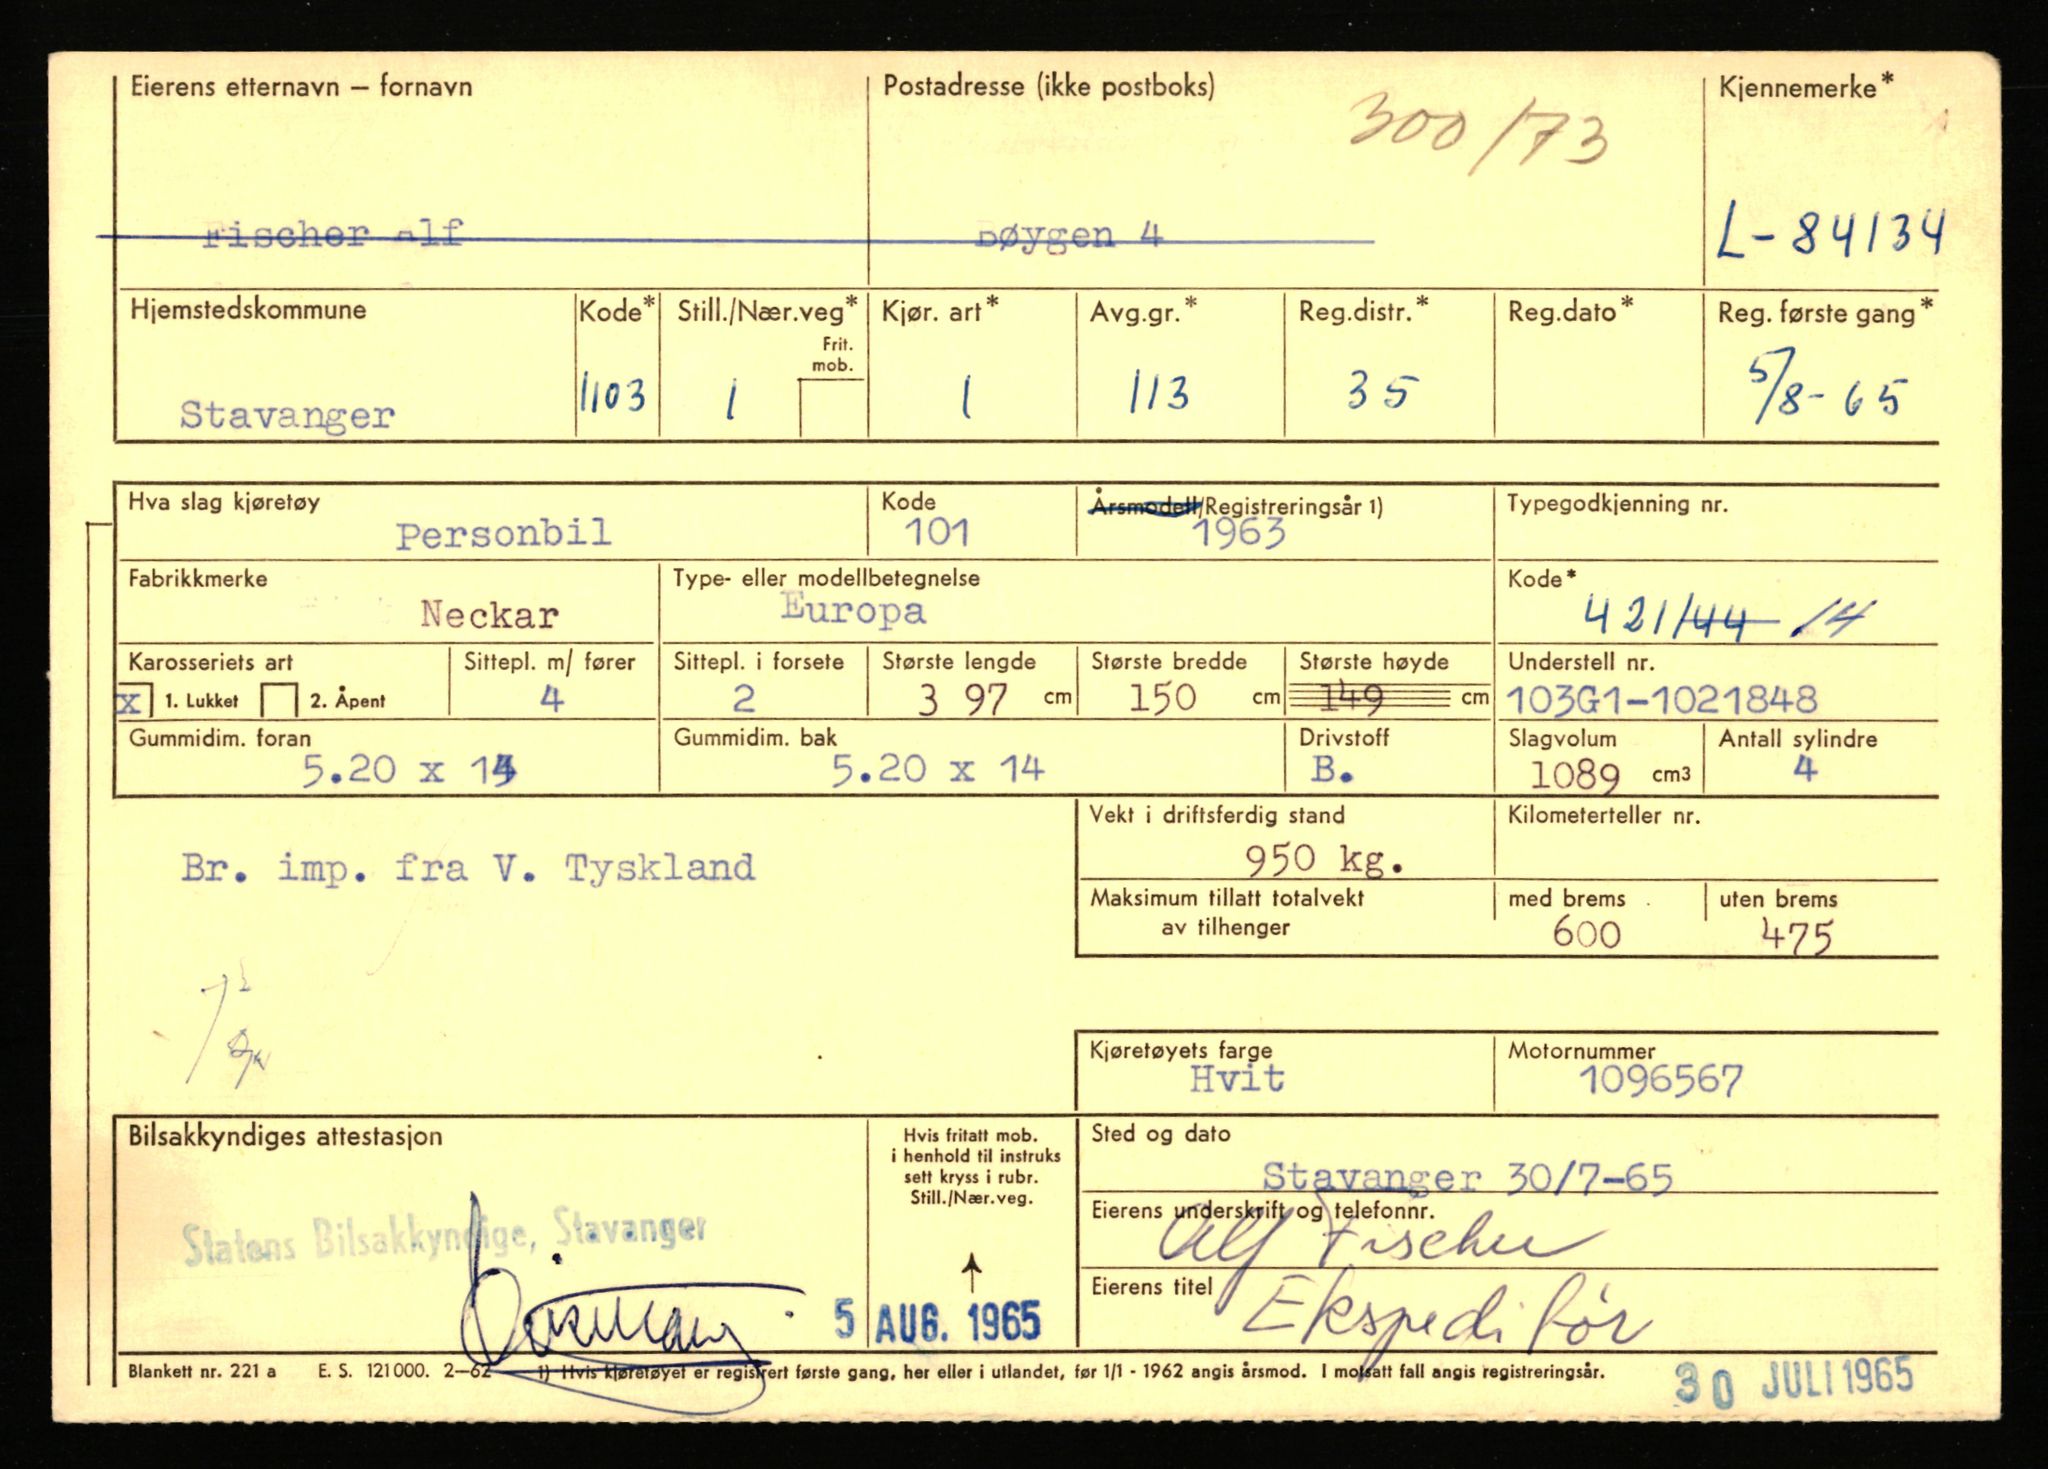 Eierens etternavn – fornavn Postadresse (ikke postboks) Kjennemerke*
300/73
Fischer Alf Bøygen 4 L-84134
Hjemstedskommune Kode* Still./Nær.veg* Kjør. art* Avg.gr.* Reg.distr.* Reg.dato* Reg. første gang*
Frit.
mob.
Stavanger 1103 1 1 113 35 5/8-65
Hva slag kjøretøy Kode Årsmodell/Registreringsår 1) Typegodkjenning nr.
Personbil 101 1963
Fabrikkmerke Type- eller modellbetegnelse Kode*
Neckar Europa 421/44 14
Karosseriets art Sittepl. m/ fører Sittepl. i forsete Største lengde Største bredde Største høyde Understell nr.
x 1. Lukket 2. Åpent 4 2 3 97 cm 150 cm 149 cm 103G1-1021848
Gummidim. foran Gummidim. bak Drivstoff Slagvolum Antall sylindre
5.20 x 14 5.20 x 14 B. 1089 cm3 4
Vekt i driftsferdig stand Kilometerteller nr.
Br. imp. fra V. Tyskland 950 kg.
Maksimum tillatt totalvekt med brems uten brems
av tilhenger 600 475
Kjøretøyets farge Motornummer
Hvit 1096567
Bilsakkyndiges attestasjon Hvis fritatt mob. Sted og dato
i henhold til instruks
sett kryss i rubr.
Still./Nær.veg.
Stavanger 30/7-65
Eierens underskrift og telefonnr.
Statens Bilsakkyndige, Stavanger Alf Fischer
Eierens titel
5 AUG. 1965 Ekspeditør
Blankett nr. 221 a E. S. 121000. 2–62 1) Hvis kjøretøyet er registrert første gang, her eller i utlandet, før 1/1 - 1962 angis årsmod. I motsatt fall angis registreringsår.
30 JULI 1965